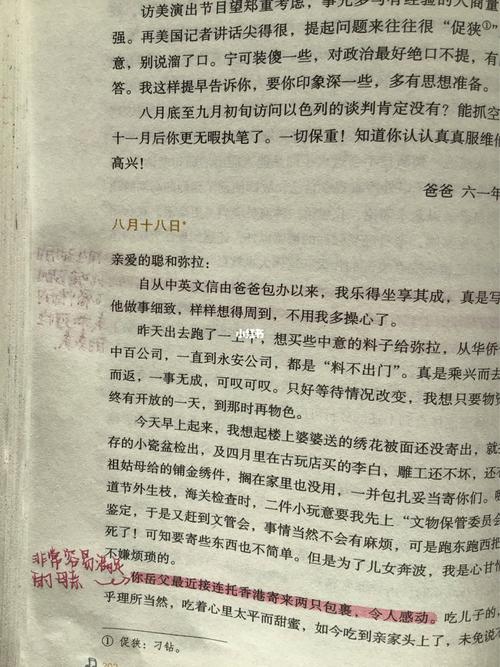 访美演出节目望郑重考虑，
强。再美国记者讲话尖得很，提起问题来往往很“促狭①”
意，别说溜了口。宁可装傻一些，对政治最好绝口不提，
答。我这样提早告诉你，要你印象深一些，多有思想准备。
八月底至九月初旬访问以色列的谈判肯定没有？能抓空
十一月后你更无暇执笔了。一切保重！知道你认认真真服维他
高兴！
爸爸 六一年
八月十八日*
亲爱的聪和弥拉：
自从中英文信由爸爸包办以来，我乐得坐享其成，真是写
他做事细致，样样想得周到，不用我多操心了。
小红书
昨天出去跑了一上午，想买些中意的料子给弥拉，从华侨
中百公司，一直到永安公司，都是“料不出门”。真是乘兴而去
而返，一事无成，可叹可叹。只好等待情况改变，我想只要物资
终有开放的一天，到那时再物色。
今天早上起来，我想起楼上婆婆送的绣花被面还没寄出，就
存的小瓷盆检出，及四月里在古玩店买的李白，雕工还不坏，还
祖姑母给的铺金绣件，搁在家里也没用，一并包扎妥当寄你们。
道节外生枝，海关检查时，二件小玩意要我先上“文物保管委员
鉴定，于是又赶到文管会，事情当然不会有麻烦，可是跑东跑西把
死了！可知要寄些东西也不简单。但是为了儿女奔波，我是心甘
不嫌烦琐的。
非常容易满足
的母亲
你岳父最近接连托香港寄来两只包裹，令人感动。吃儿子的，
乎理所当然，吃着心里太平而甜蜜，如今吃到亲家头上了，未免说不
① 促狭：刁钻。